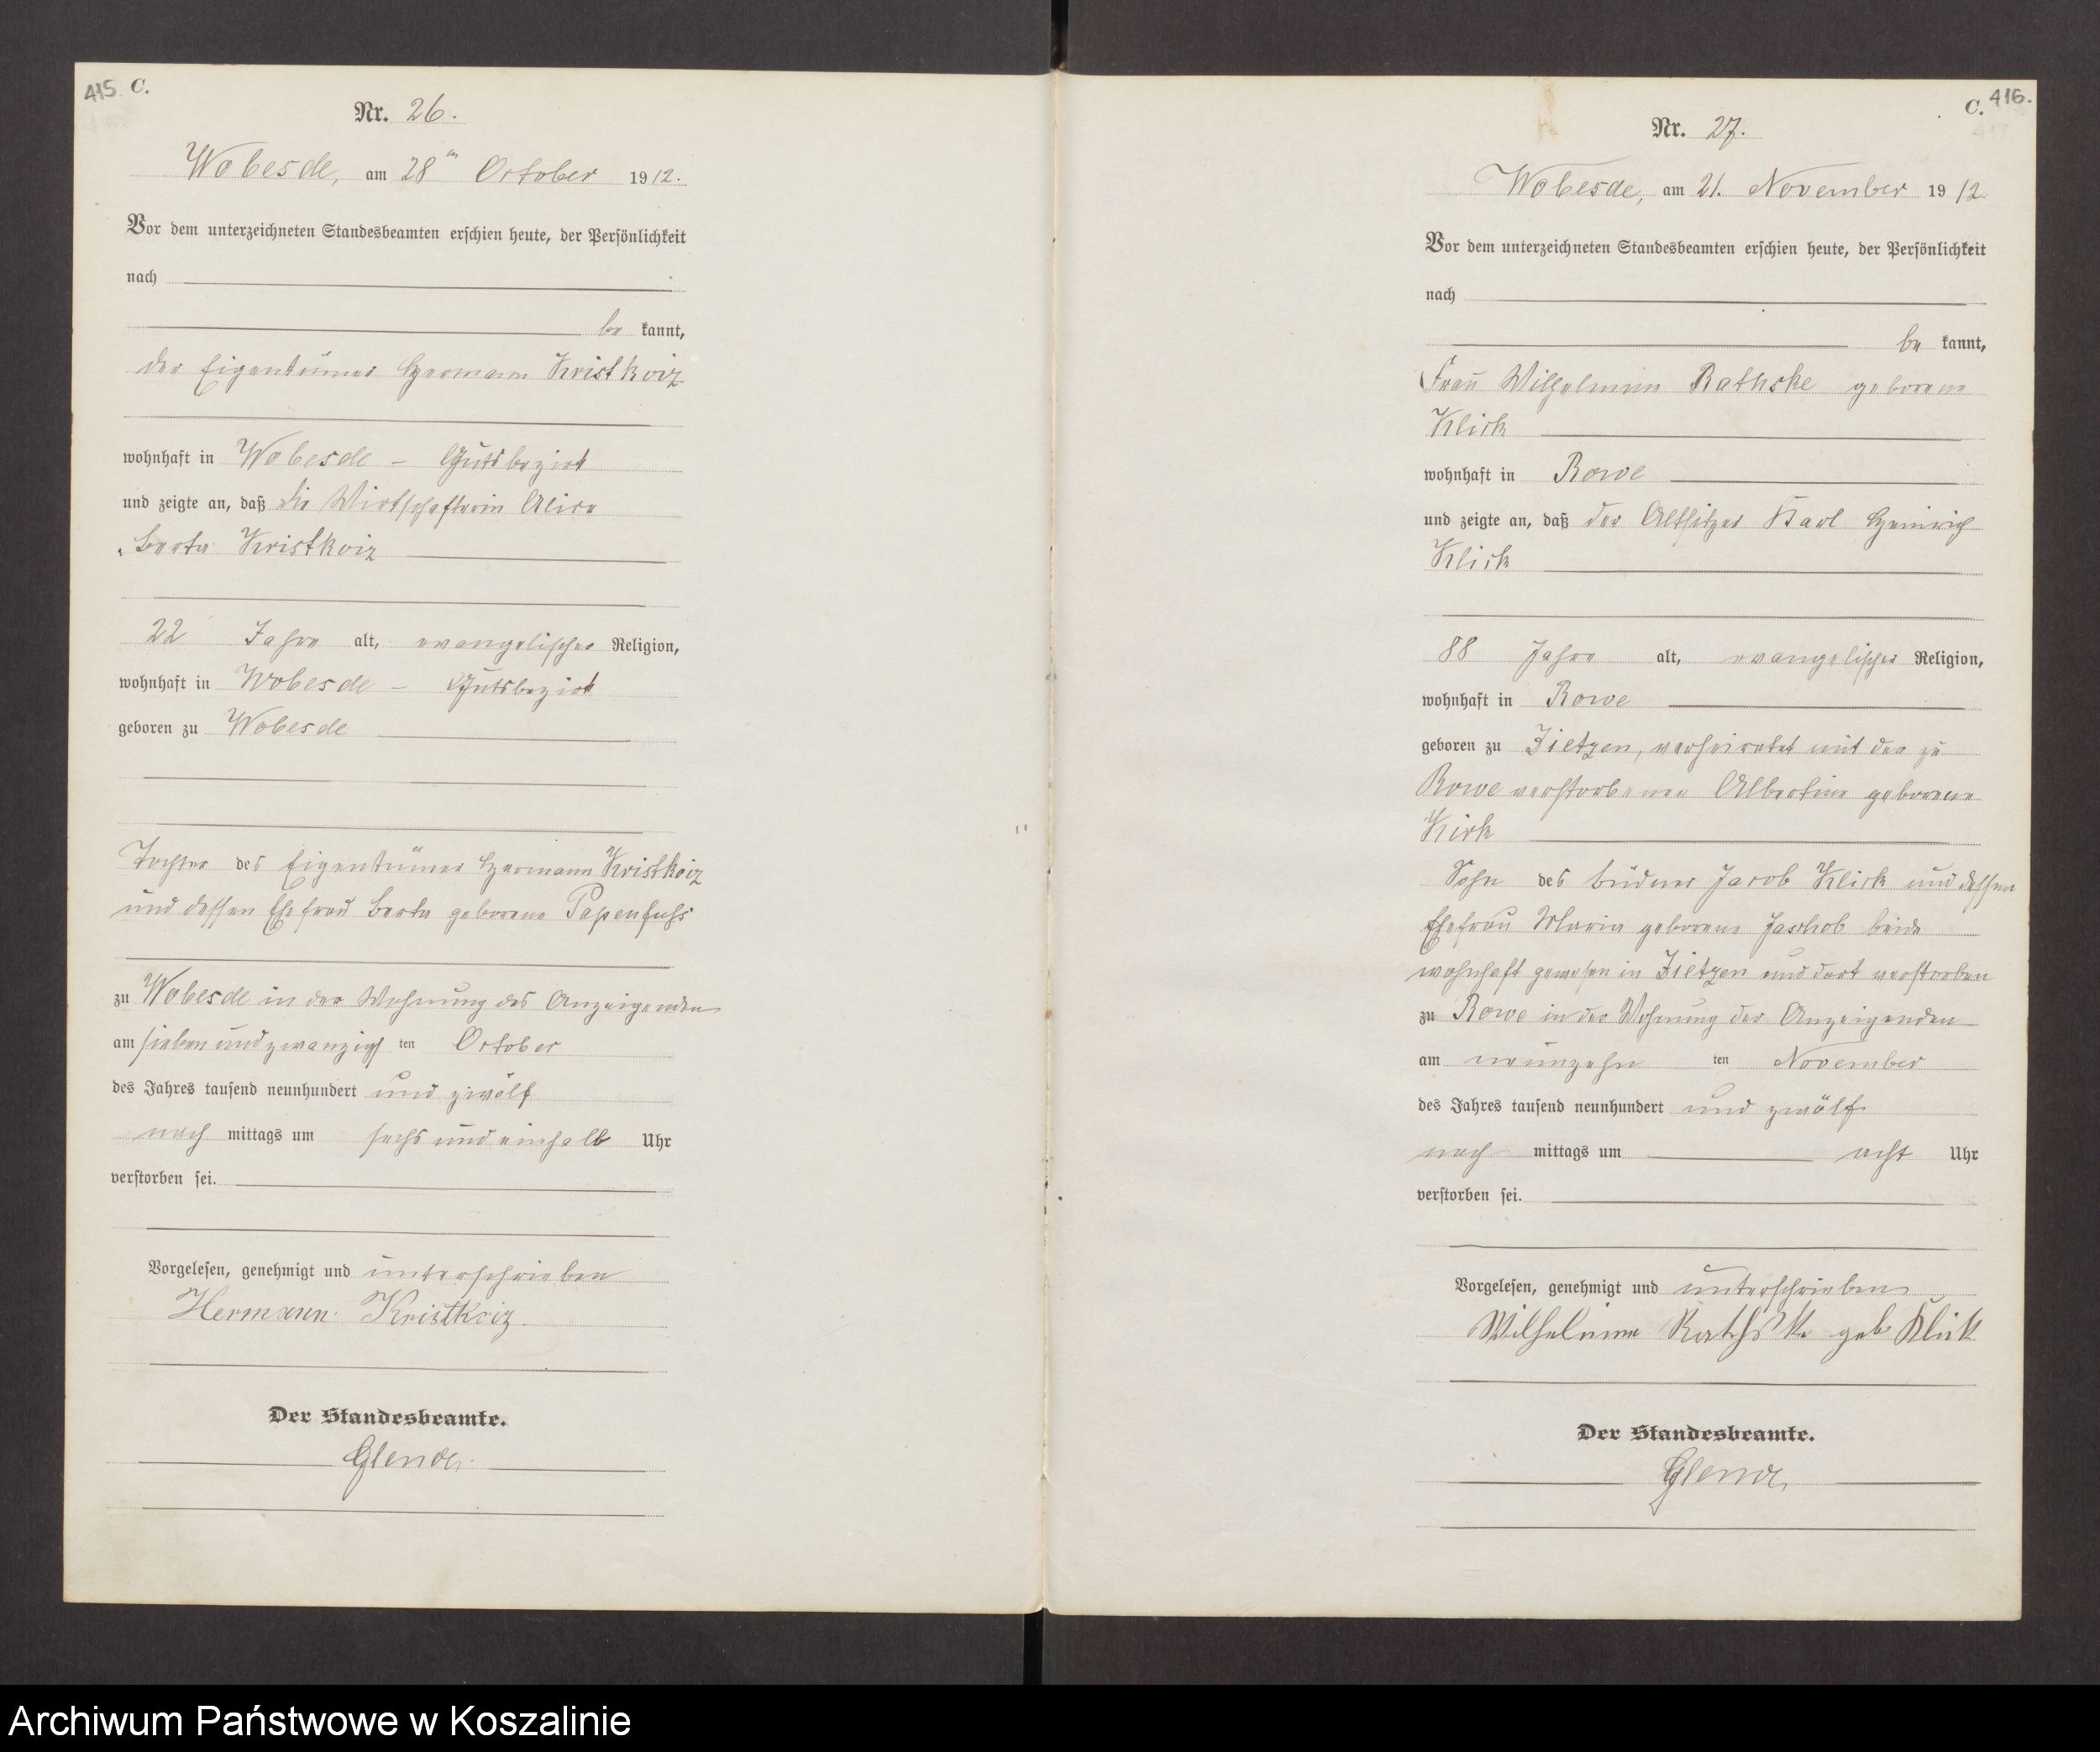 415. C.
Nr. 26.
Wobesde, am 28ten October 1912.
Vor dem unterzeichneten Standesbeamten erschien heute, der Persönlichkeit
nach
be kannt,
der Eigentümer Hermann Kristkoiz
wohnhaft in Wobesde – Gutsbezirk
und zeigte an, daß die Wirtschafterin Alice
Berta Kristkoiz
22 Jahre alt, evangelischer Religion,
wohnhaft in Wobesde – Gutsbezirk
geboren zu Wobesde
Tochter des Eigentümer Hermann Kristkoiz
und dessen Ehefrau Berta geborene Papenfuhs
zu Wobesde in der Wohnung des Anzeigenden
am siebenundzwanzigs ten October
des Jahres tausend neunhundert und zwölf
nach mittags um sechs und einhalb Uhr
verstorben sei.
Vorgelesen, genehmigt und unterschrieben
Hermann Kristkoiz.
Der Standesbeamte.
C. 416.
Nr. 27.
Wobesde, am 21. November 1912.
Vor dem unterzeichneten Standesbeamten erschien heute, der Persönlichkeit
nach
be kannt,
Frau Wilhelmine Rathske geborene
Klick
wohnhaft in Rowe
und zeigte an, daß der Altsitzer Karl Heinrich
Klick
88 Jahre alt, evangelischer Religion,
wohnhaft in Rowe
geboren zu Zietzen, verheiratet mit der zu
Rowe verstorbenen Albertine geborene
Kirk
Sohn des Büdner Jacob Klick und dessen
Ehefrau Maria geborene beide
wohnhaft gewesen in Zietzen und dort verstorben
zu Rowe in der Wohnung der Anzeigenden
am neunzehn ten November
des Jahres tausend neunhundert und zwölf
nach mittags um acht Uhr
verstorben sei.
Vorgelesen, genehmigt und unterschrieben
Wilhelmine Rathske geb Klick
Der Standesbeamte.
Archiwum Państwowe w Koszalinie